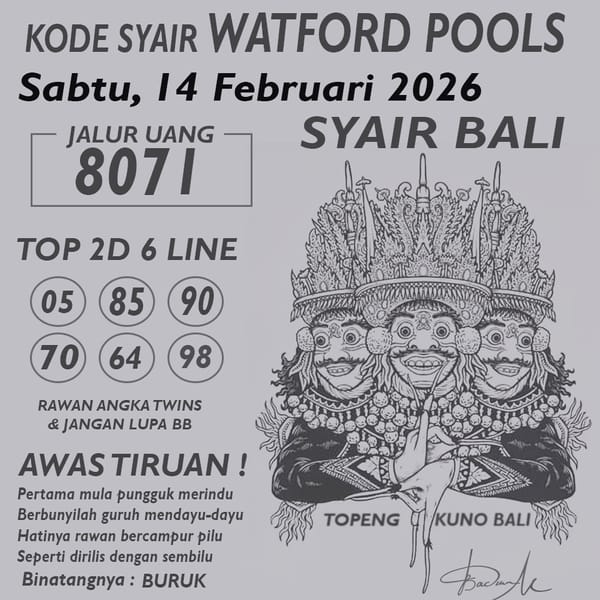 KODE SYAIR WATFORD POOLS
Sabtu, 14 Februari 2026
SYAIR BALI
JALUR UANG
8071
TOP 2D 6 LINE
05 85 90
70 64 98
RAWAN ANGKA TWINS
& JANGAN LUPA BB
AWAS TIRUAN !
Pertama mula pungguk merindu
Berbunyilah guruh mendayu-dayu
Hatinya rawan bercampur pilu
Seperti dirilis dengan sembilu
Binatangnya : BURUK
TOPENG KUNO BALI